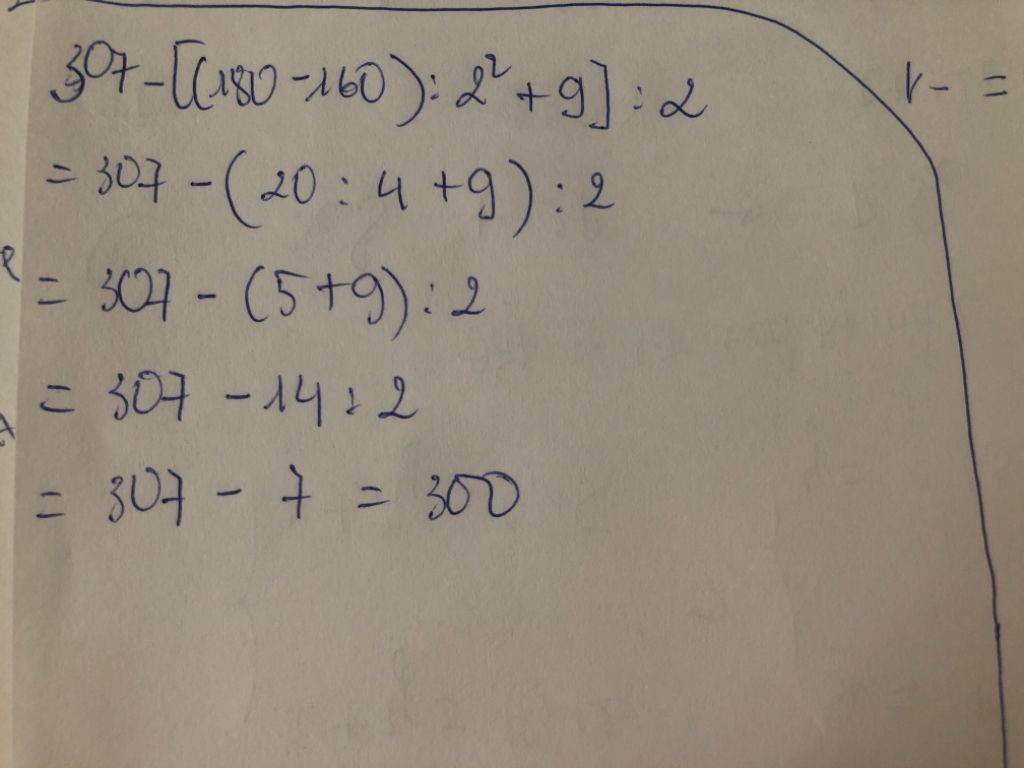 307 - [(180 - 160) : 2² + 9] : 2
= 307 - (20 : 4 + 9) : 2
= 307 - (5 + 9) : 2
= 307 - 14 : 2
= 307 - 7 = 300